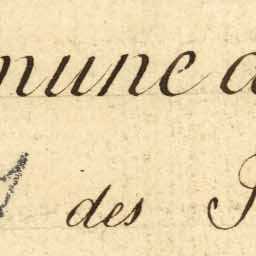 mune d
des